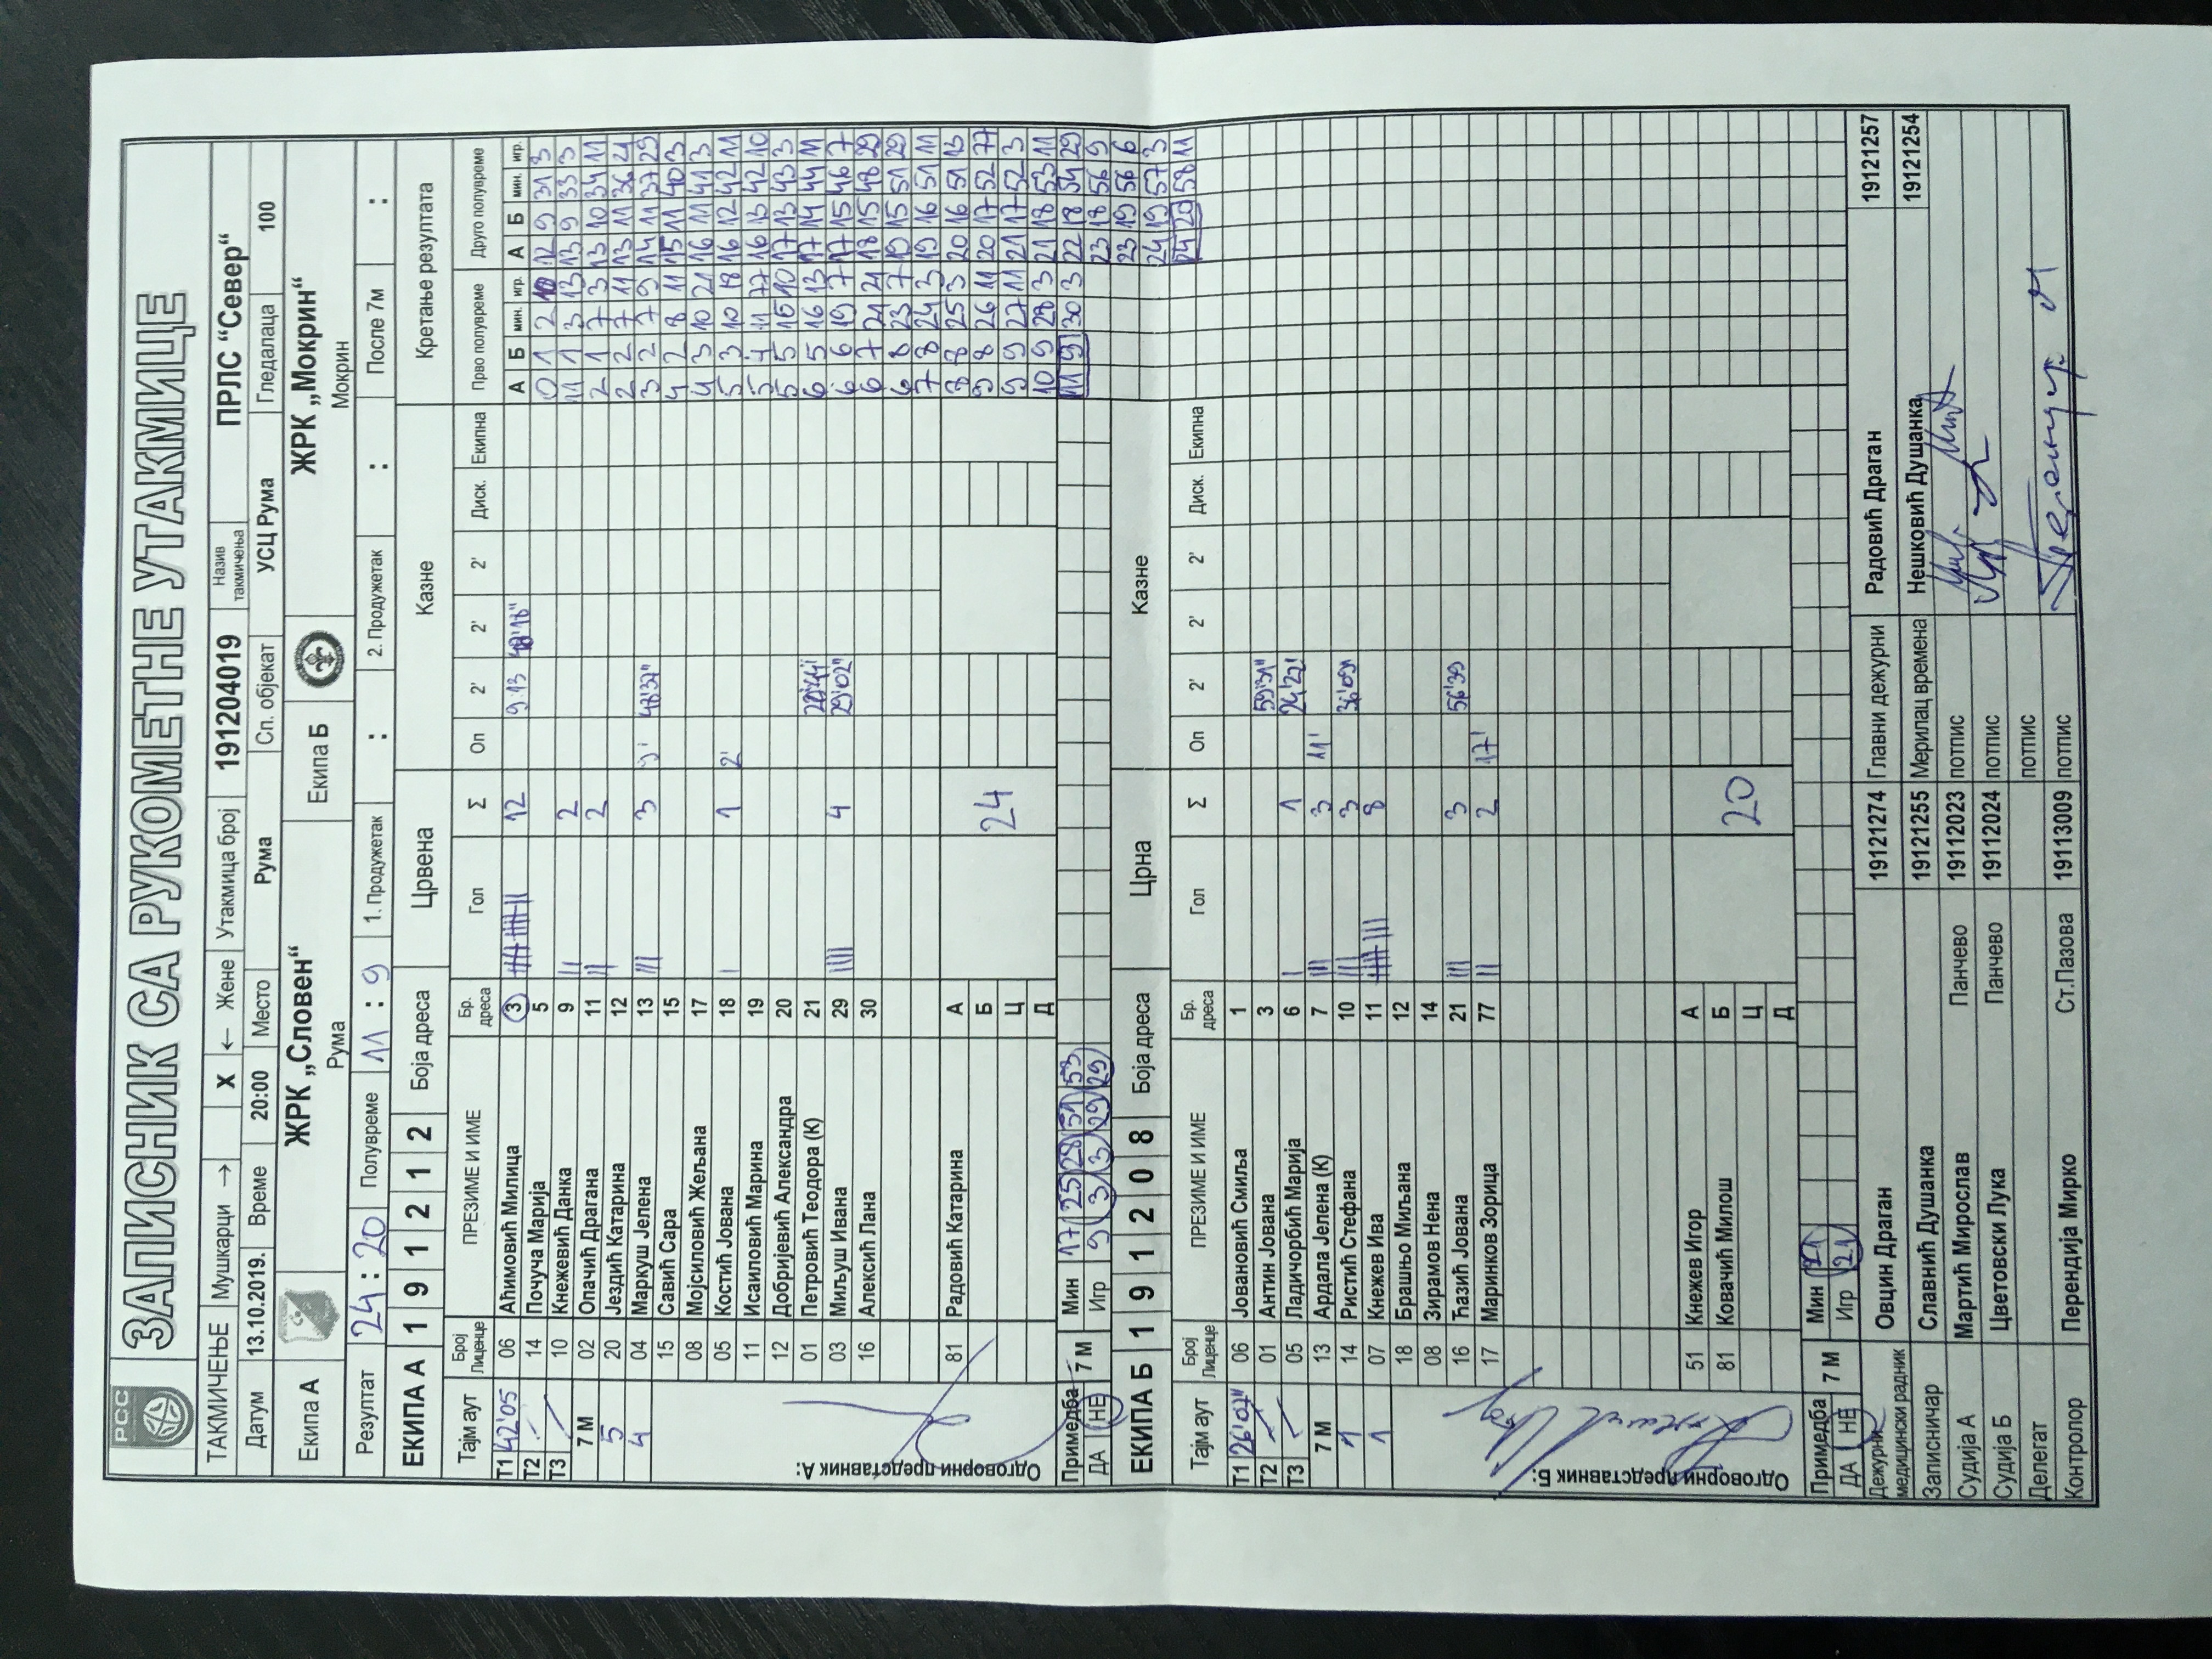 РСС
ЗАПИСНИК СА РУКОМЕТНЕ УТАКМИЦЕ
ТАКМИЧЕЊЕ Мушкарци → X ← Жене Утакмица број 191204019 Назив такмичења ПРЛС “Север“
Датум 13.10.2019. Време 20:00 Место Рума Сп. објекат УСЦ Рума Гледалаца 100
Екипа А ЖРК „Словен“ Рума Екипа Б ЖРК „Мокрин“ Мокрин
Резултат 24 : 20 Полувреме 11 : 9 1. Продужетак : 2. Продужетак : После 7м :
ЕКИПА А 1 9 1 2 1 2 Боја дреса Црвена Казне Кретање резултата
Тајм аут Број Лиценце ПРЕЗИМЕ И ИМЕ Бр. дреса Гол Σ Оп 2' 2' 2' Диск. Екипна Прво полувреме Друго полувреме
А Б мин. игр. А Б мин. игр.
Т1 42'05 06 Аћимовић Милица 3 12 9:13 48'18"
Т2 14 Почуча Марија 5
Т3 10 Кнежевић Данка 9 2
7 М 02 Опачић Драгана 11 2
5 20 Јездић Катарина 12
4 04 Маркуш Јелена 13 3 9'
15 Савић Сара 15
08 Мојсиловић Жељана 17
05 Костић Јована 18 1 2'
11 Исаиловић Марина 19
12 Добријевић Александра 20
01 Петровић Теодора (К) 21
03 Миљуш Ивана 29 4 29'02"
16 Алексић Лана 30
81 Радовић Катарина А
Б
24
Ц
Д
Одговорни представник А:
0 1 2 10 12 9 31 3
1 1 3 13 13 9 33 3
2 1 7 3 13 10 34 11
2 2 7 11 13 11 36 21
3 2 7 9 14 11 37 29
4 2 8 11 15 11 40 3
4 3 10 21 16 11 41 3
5 3 10 18 16 12 42 11
5 4 11 77 16 13 42 10
5 5 15 10 17 13 43 3
6 5 16 13 17 14 44 11
6 6 19 7 17 15 46 7
6 7 21 21 18 15 48 29
6 8 23 7 19 15 51 29
7 8 24 3 19 16 51 11
8 8 25 3 20 16 51 13
9 8 26 11 20 17 52 77
9 9 27 11 21 17 52 3
10 9 28 3 21 18 53 11
11 9 30 3 22 18 54 29
23 18 56 9
23 19 56 6
24 19 57 3
24 20 58 11
Примедба 7 М Мин 17 25 28 51 53
ДА НЕ Игр 9 3 3 29 29
ЕКИПА Б 1 9 1 2 0 8 Боја дреса Црна Казне
Тајм аут Број Лиценце ПРЕЗИМЕ И ИМЕ Бр. дреса Гол Σ Оп 2' 2' 2' Диск. Екипна
Т1 26'07" 06 Јовановић Смиља 1
Т2 01 Антин Јована 3 59'31"
Т3 05 Падичорбић Марија 6 1 24'22'
7 М 13 Ардала Јелена (К) 7 3 11'
1 14 Ристић Стефана 10 3 36'09
1 07 Кнежев Ива 11 8
18 Брашњо Миљана 12
08 Зирамов Нена 14
16 Ћазић Јована 21 3 56'39
17 Маринков Зорица 77 2 17'
51 Кнежев Игор А
81 Ковачић Милош Б
20
Ц
Д
Одговорни представник Б:
Примедба 7 М Мин 21
ДА НЕ Игр 21
Дежурни медицински радник Овцин Драган 19121274 Главни дежурни Радовић Драган 19121257
Записничар Славнић Душанка 19121255 Мерилац времена Нешковић Душанка 19121254
Судија А Мартић Мирослав Панчево 19112023 потпис
Судија Б Цветовски Лука Панчево 19112024 потпис
Делегат потпис
Контролор Перендија Мирко Ст.Пазова 19113009 потпис